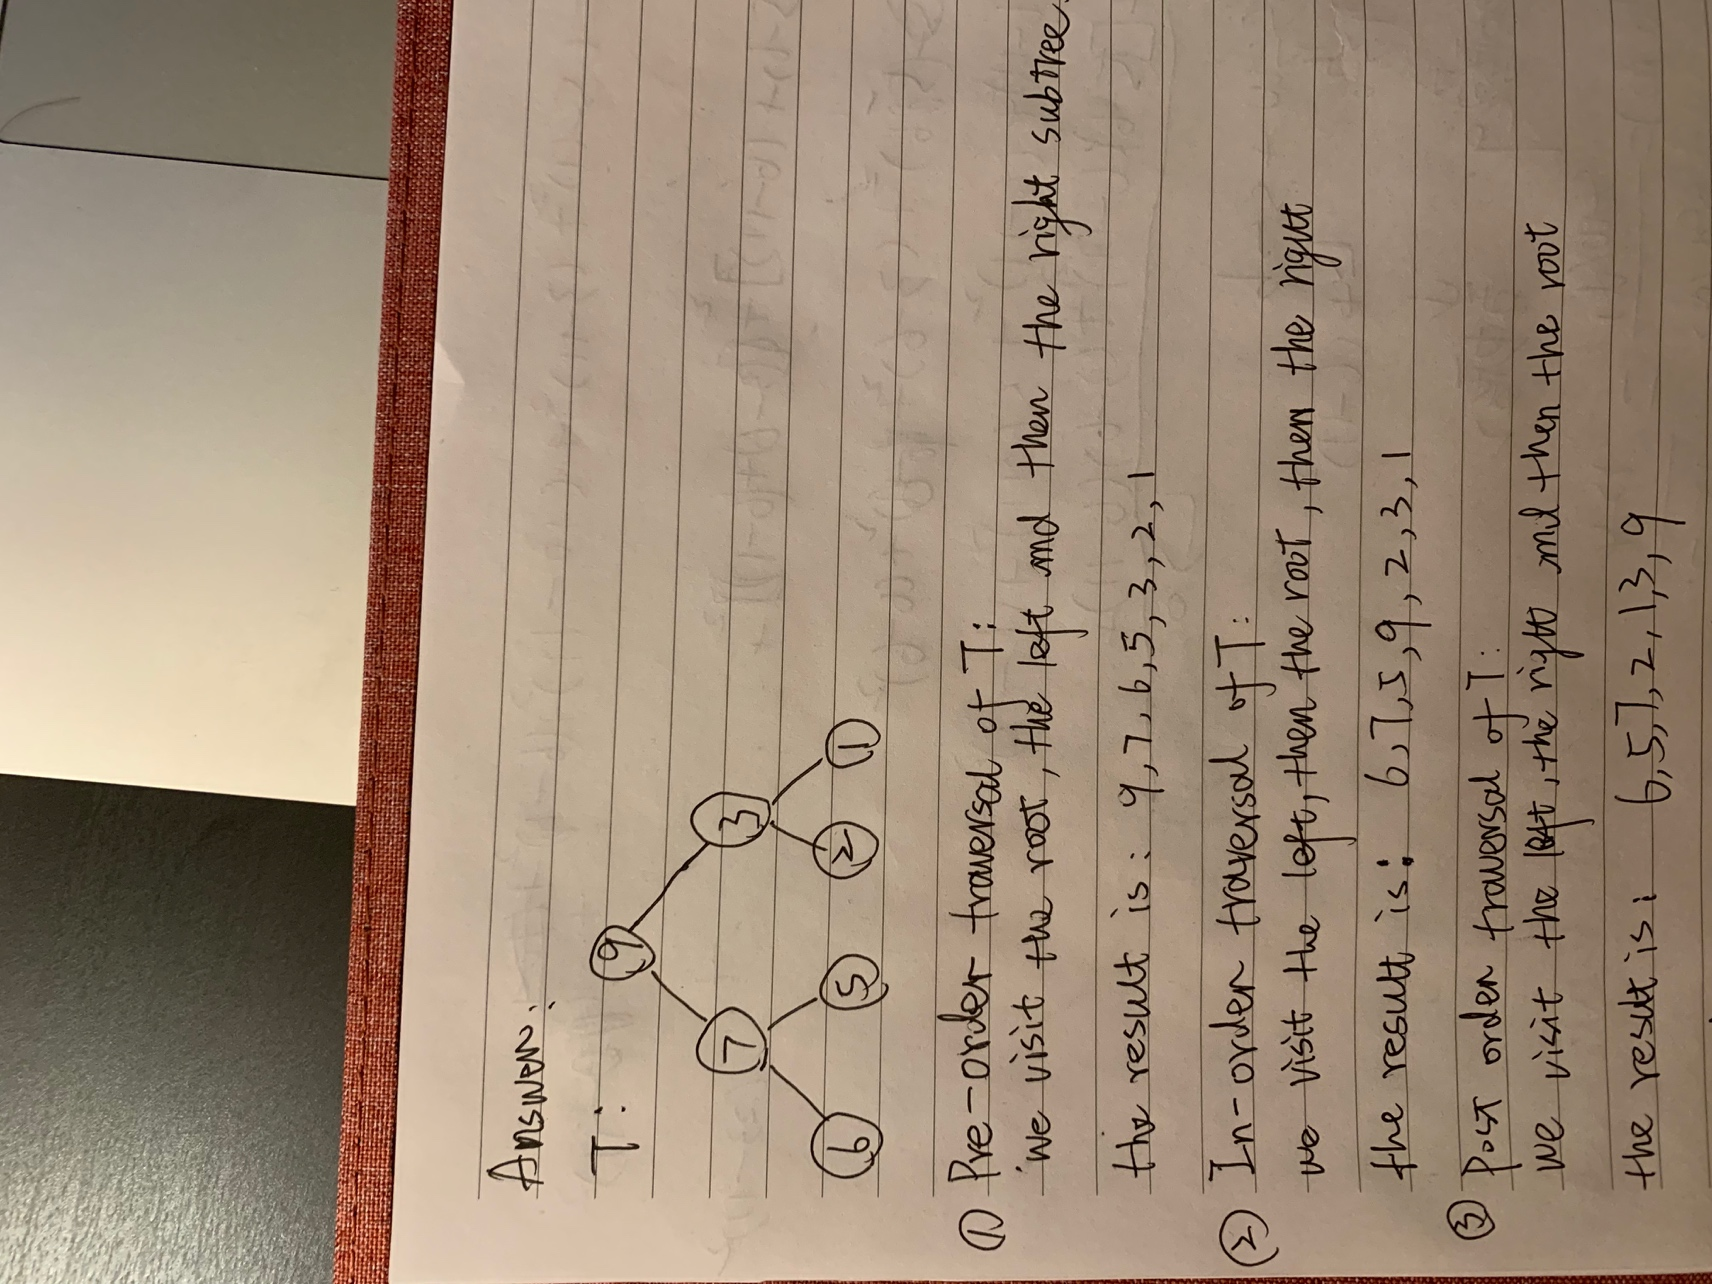 Answer:
T:
9
7 3
6 5 2 1
① Pre-order traversal of T:
we visit the root, the left and then the right subtree.
the result is: 9,7,6,5,3,2,1
② In-order traversal of T:
we visit the left, then the root, then the right
the result is: 6,7,5,9,2,3,1
③ Post order traversal of T:
we visit the left, the right and then the root
the result is: 6,5,7,2,1,3,9